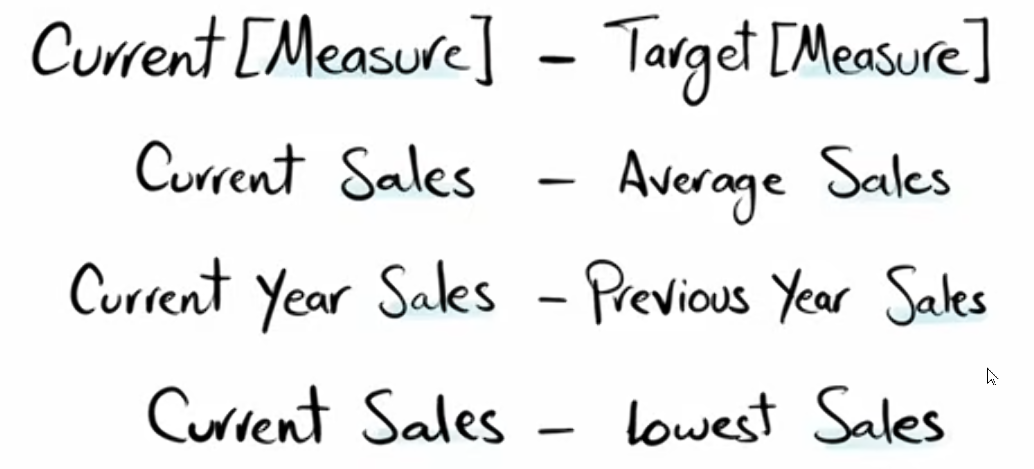 Current [Measure] - Target [Measure]
Current Sales - Average Sales
Current Year Sales - Previous Year Sales
Current Sales - Lowest Sales